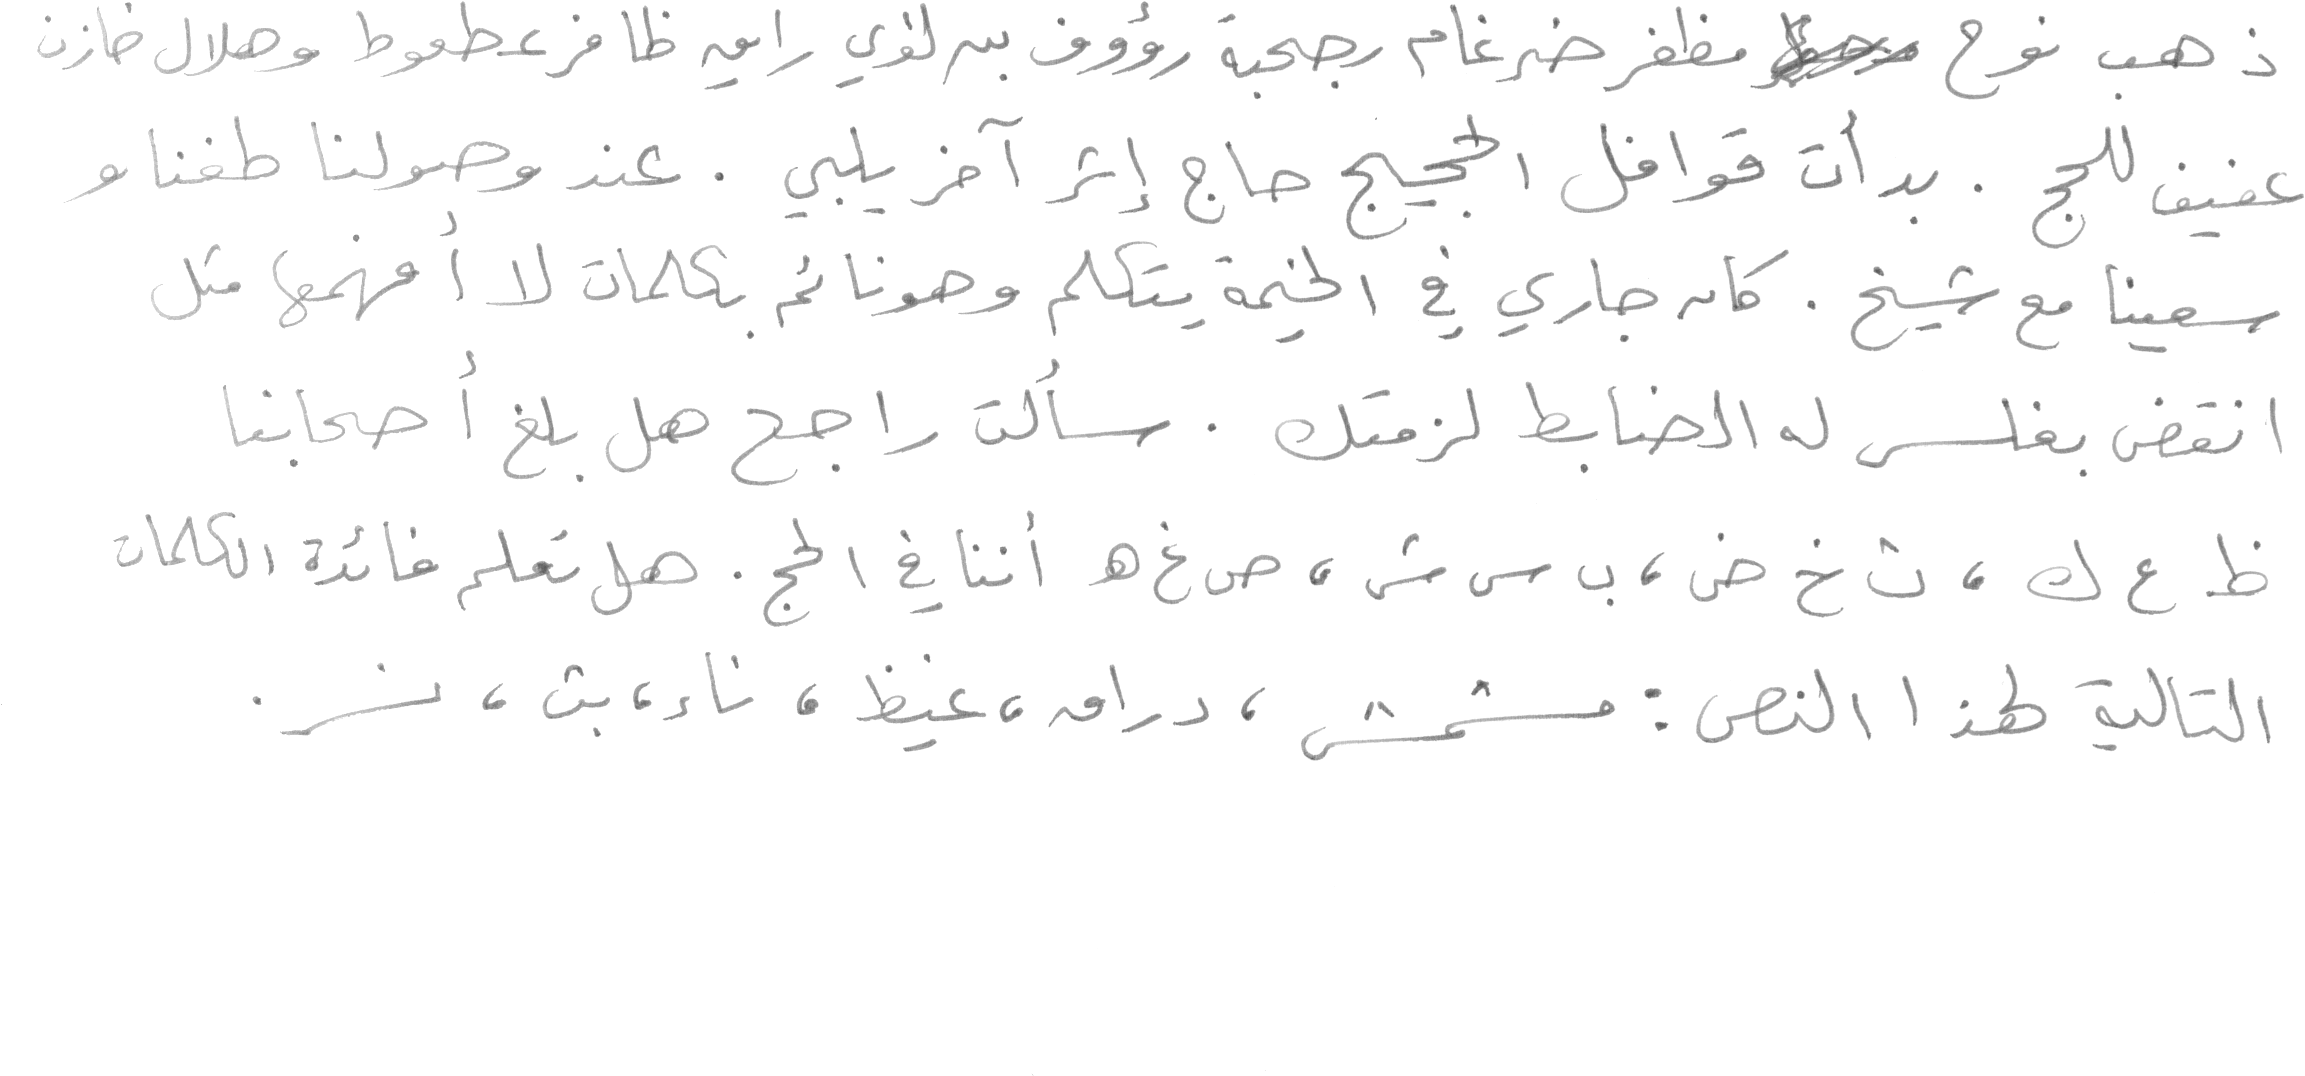 ذهب نوح مظفر ضرغام بصحبة رؤوف بن لؤي رايق ظافر عطعوط وهلال خازن
عفيف للحج . بدأت قوافل الحجيج حاج إثر آخر يلبي . عند وصولنا طفنا و
سعينا مع شيخ . كان جاري في الخيمة يتكلم وهو نائم بكلمات لا أفهمها مثل
انقض بغلس له الضابط لزمتك . سألت راجح هل بلغ أصحابنا
ظ ع ك ، ث خ ض ، ب س ش ، ص غ ه أننا في الحج . هل تعلم فائدة الكلمات
التالية لهذا النص : مشمش ، دراق ، غيظ ، ناء ، بث ، نسر .